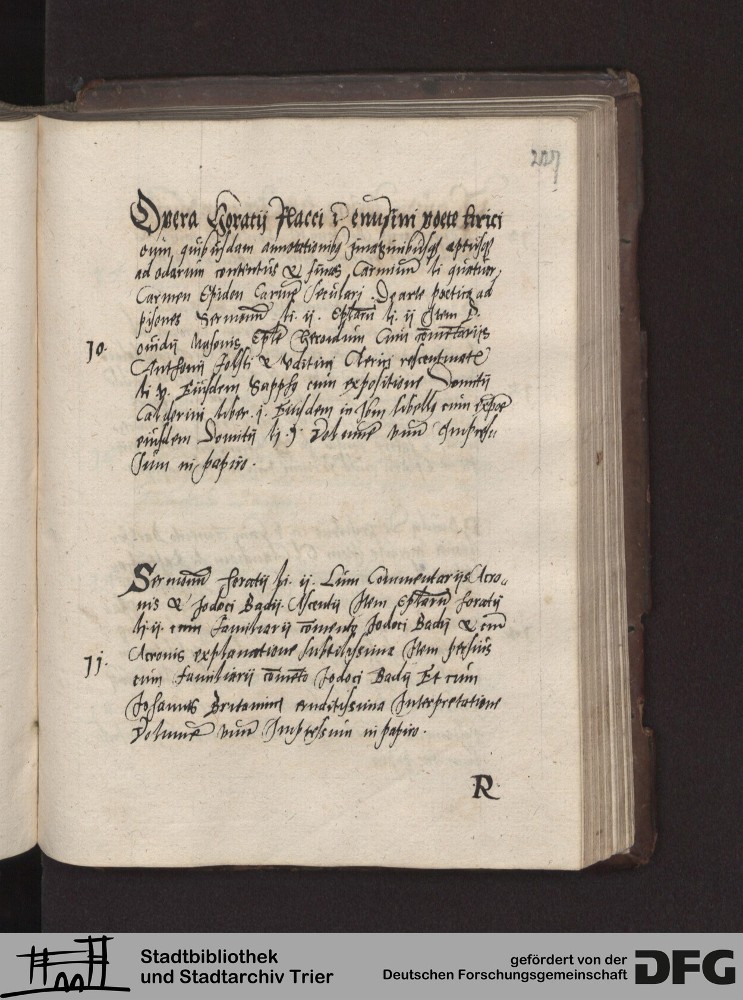 227
Opera Horatij Flacci Venusini poete lirici
cum quibusdam annotationibus imaginibusque aptisque
ad odarum contentus & sentencias Carminum li quatuor
Carmen Epodon Carmen seculari . De arte poetica ad
pisones Sermonum li. ij. Epistolarum li ij Item P.
10. ouidij Nasonis Heroidum Cum comentarijs
Anthonij Volsci & Vbertini Clerici
li j. Eiusdem Sappho cum expositione Domitij
Calderini liber . j. Eiusdem in Ibin libellus cum
eiusdem Domitij li j. Volumen vnum Impres-
sum in papiro .
Sermonum horatij li. ij. Cum Commentarijs Acro-
nis & Jodoci Badij Ascensij Item Epistolarum horatij
li ij. cum familiari comento Jodoci Badij & cum
11. Acronis explanatione subtilissima Item persius
cum familiari comento Jodoci Badij Et cum
Johannis Britannici eruditissima Interpretatione
Volumen vnum Impressum in papiro .
R
Stadtbibliothek
und Stadtarchiv Trier
gefördert von der
Deutschen Forschungsgemeinschaft
DFG